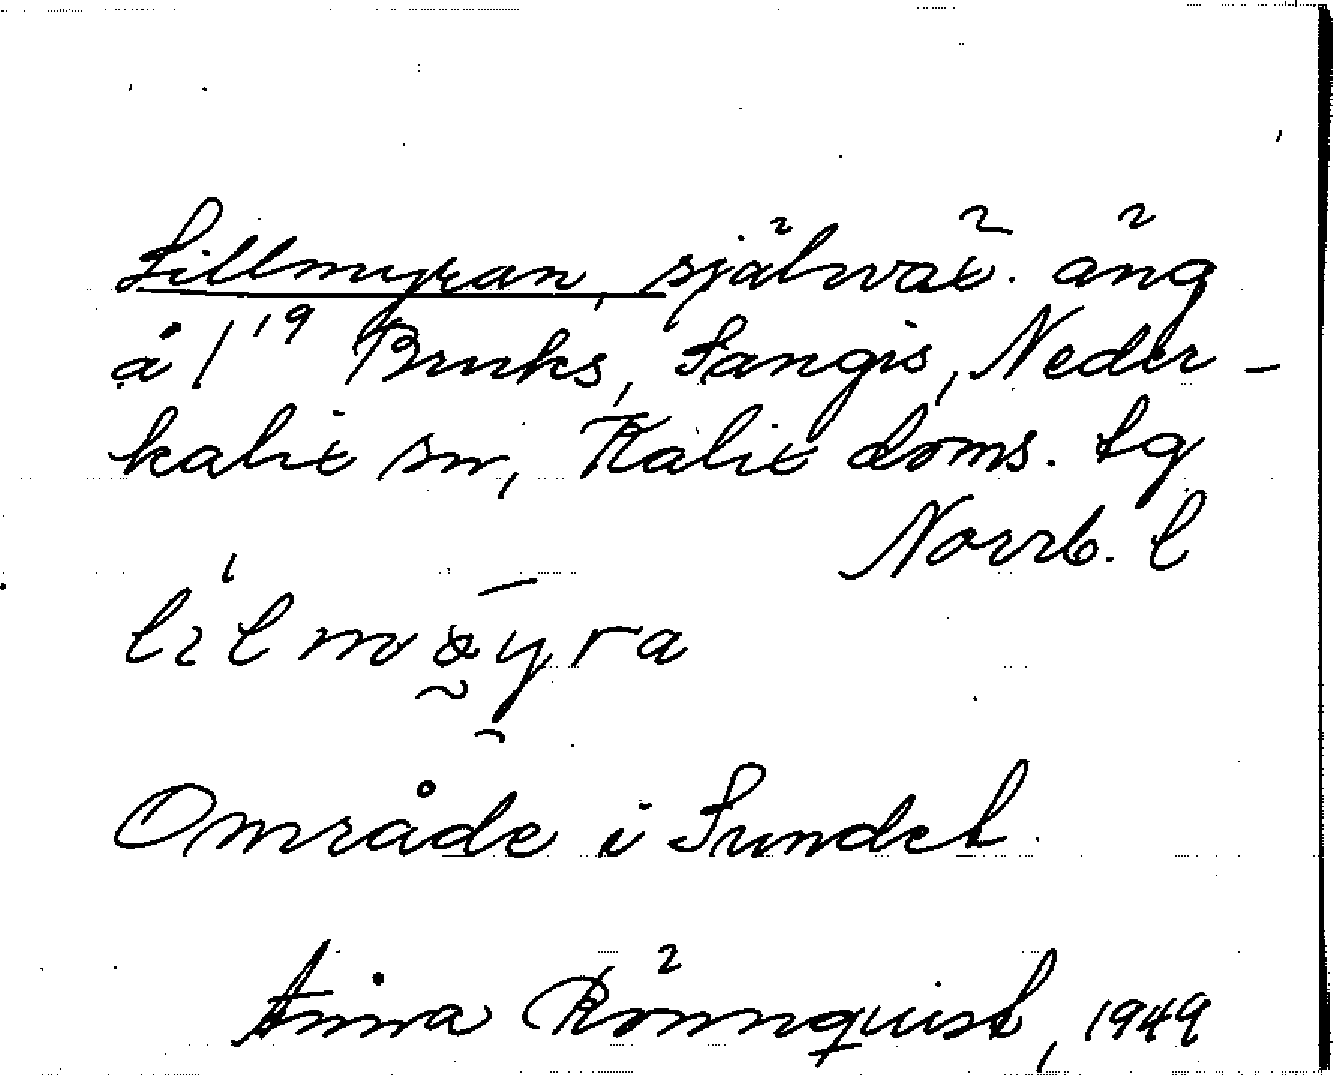 Lillmyran, självväx. äng
å 1¹⁹ Bruks, Sangis, Neder-
kalix sn, Kalix doms. sg
Norrb. l
Område i Sundet
Anna Rönnquist, 1949